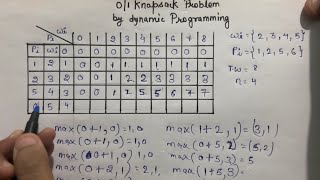 0/1 Knapsack Problem
by dynamic Programming
wi → 0 1 2 3 4 5 6 7 8
Pi wi 0 0 0 0 0 0 0 0 0
1 2 1 0 0 1 1 1 1 1 1 1
2 3 2 0 0 1 2 2 3 3 3 3
5 4 3 0 0 1 2 5 5 6 7 7
5 4
wi = {2, 3, 4, 5}
Pi = {1, 2, 5, 6}
TW = 8
n = 4
max(0+1,0) = 1,0
max(0+1,0) = 1,0
max(0+1,0) = 1,0
max(0+2,1) = 2,1
max(1+2,1) = (3,1)
max(0+5,2) = (5,2)
max(0+5,3) = 5
max(1+5,3) =